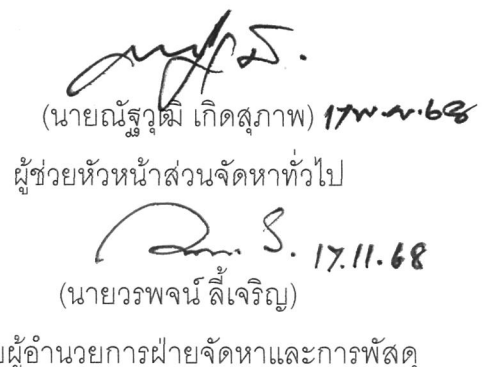 (นายณัฐวุฒิ เกิดสุภาพ) 17 พ.ย. 68
ผู้ช่วยหัวหน้าส่วนจัดหาทั่วไป
17.11.68
(นายวรพจน์ ลี้เจริญ)
ผู้อำนวยการฝ่ายจัดหาและการพัสดุ